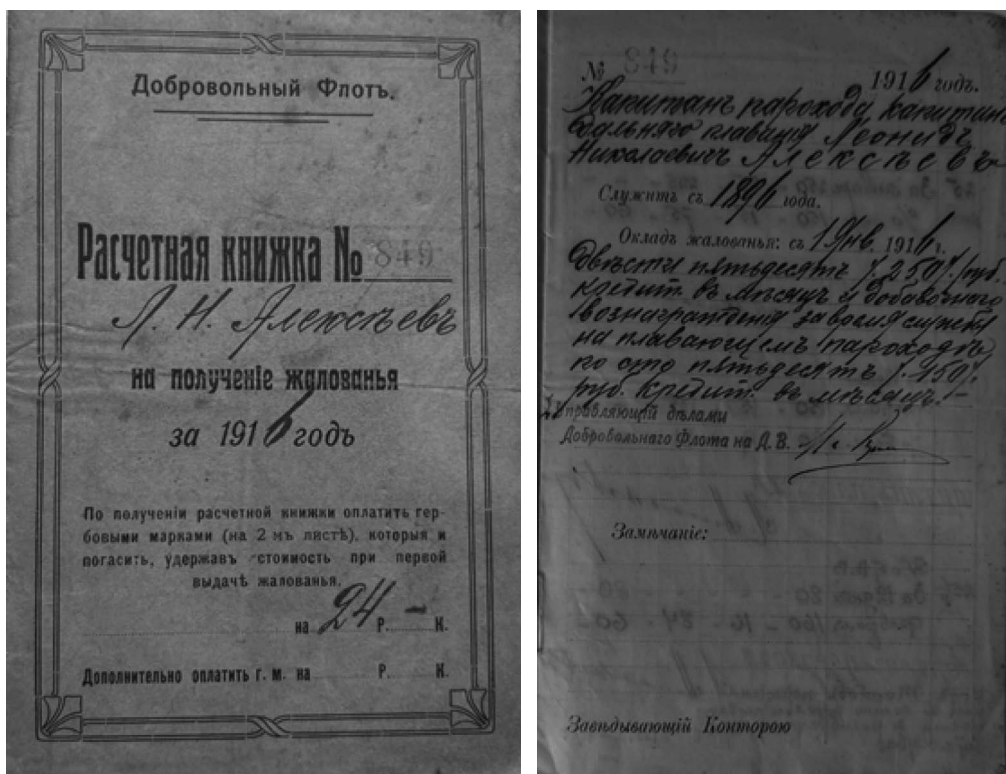 Добровольный Флотъ.
Расчетная книжка № 849
Л. Н. Алексѣевъ
на полученіе жалованья
за 1916 годъ
По полученіи расчетной книжки оплатить гер-
бовыми марками (на 2 мъ листѣ), которыя и
погасить, удержавъ стоимость при первой
выдачѣ жалованья.
на 24 Р. – К.
Дополнительно оплатить г. м. на Р. К.
№ 849 1916 годъ.
Капитанъ парохода капитан
дальняго плаванія Леонидъ
Николаевич Алексѣевъ
Служитъ съ 1896 года.
Окладъ жалованья: съ 1 Янв. 1916 г.
Двѣсти пятьдесятъ /. 250 /. руб.
кредит. въ мѣсяцъ и добавочнаго
вознагражденія за время службы
на плавающемъ пароходѣ
по сто пятьдесятъ /. 150 /.
руб. кредит. въ мѣсяцъ. –
Управляющій дѣлами
Добровольнаго Флота на Д. В.
Замѣчаніе:
Завѣдывающій Конторою